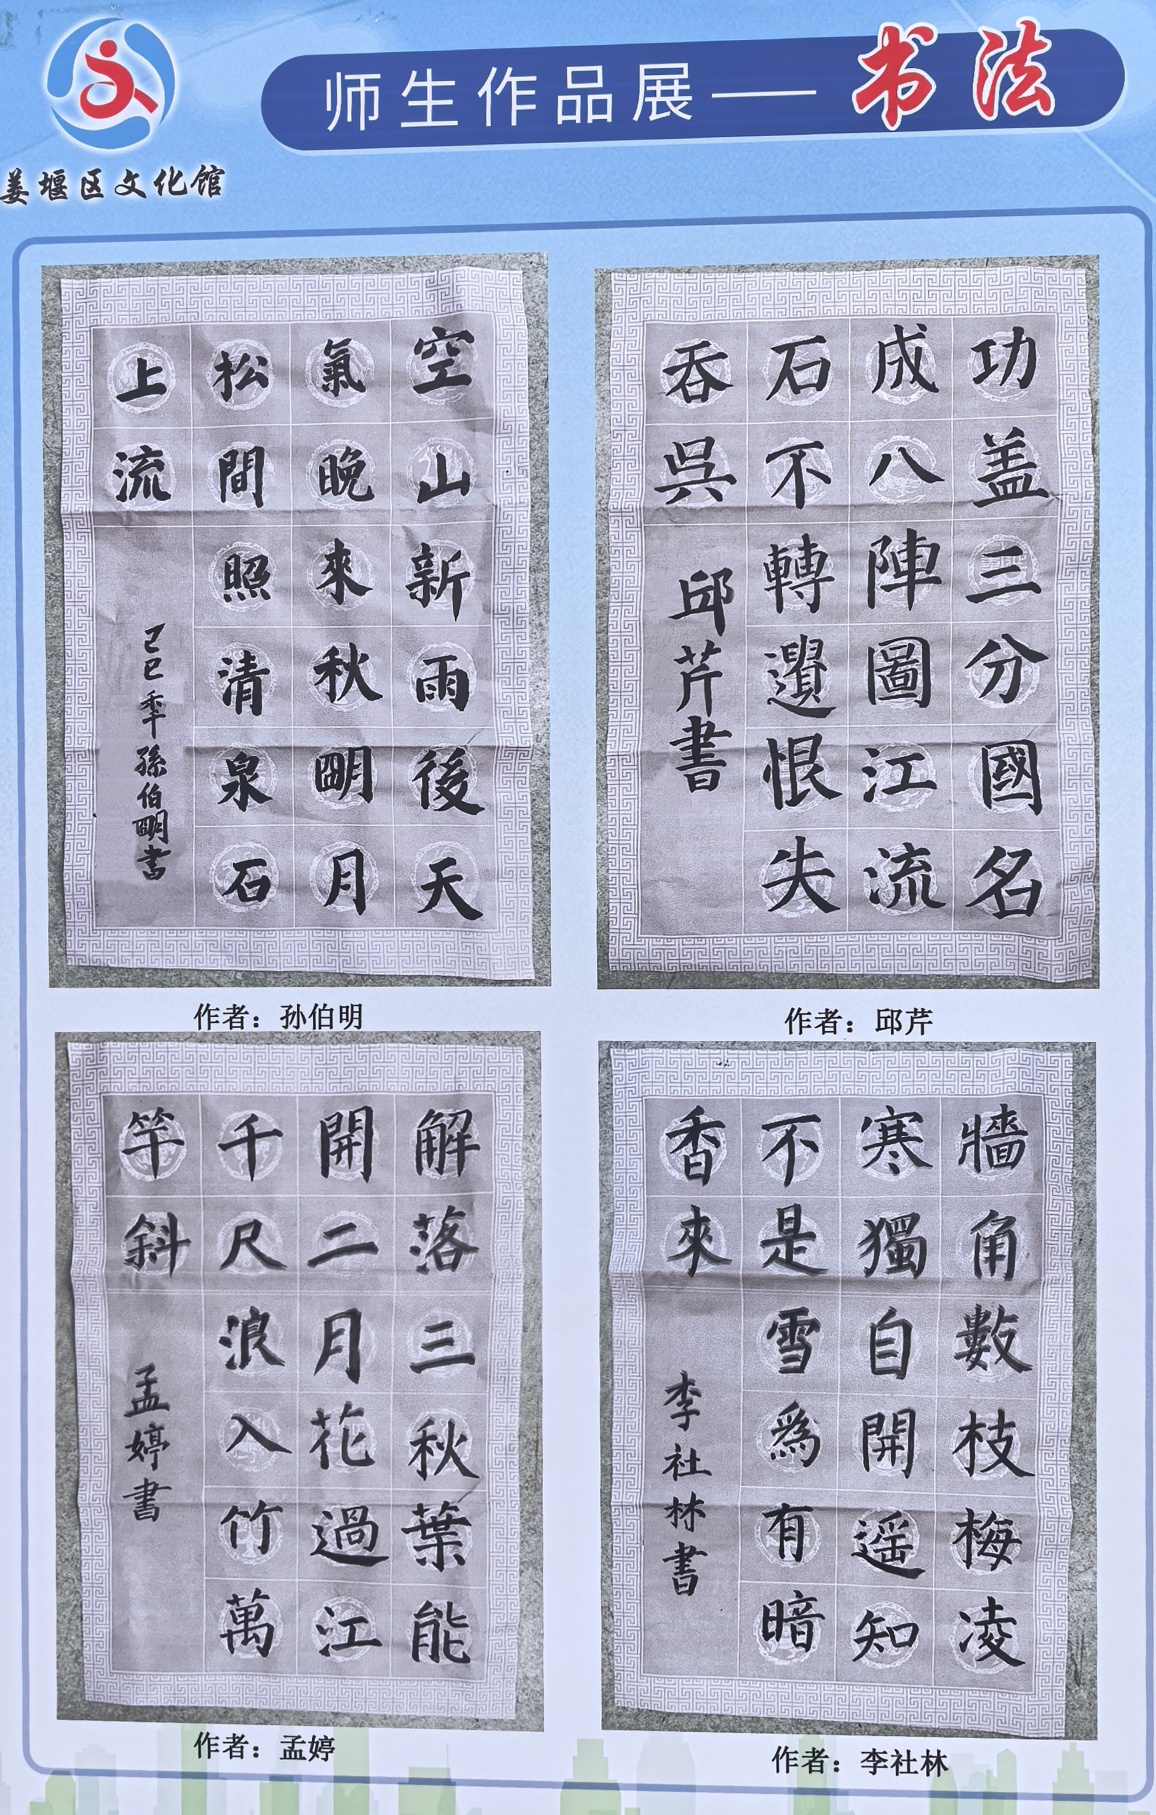 姜堰区文化馆
师生作品展——书法
空山新雨後天
氣晚來秋明月
松間照清泉石
上流
己巳年孫伯明書
作者：孙伯明
功盖三分國名
成八陣圖江流
石不轉遺恨失
吞吳
邱芹書
作者：邱芹
解落三秋葉能
開二月花過江
千尺浪入竹萬
竿斜
孟婷書
作者：孟婷
牆角數枝梅凌
寒獨自開遥知
不是雪爲有暗
香來
李社林書
作者：李社林